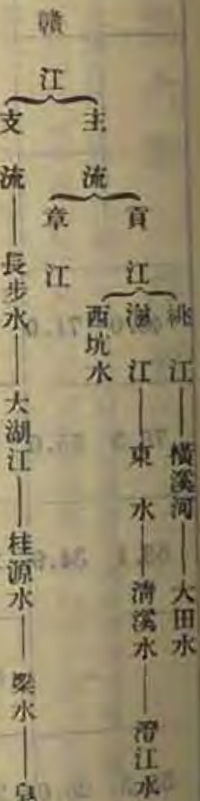 贛江
主流
貢江
桃江——橫溪河——大田水
湘江——東水——清溪水——澄江水
西坑水
章江
支流——長步水——大湖江——桂源水——梁水——